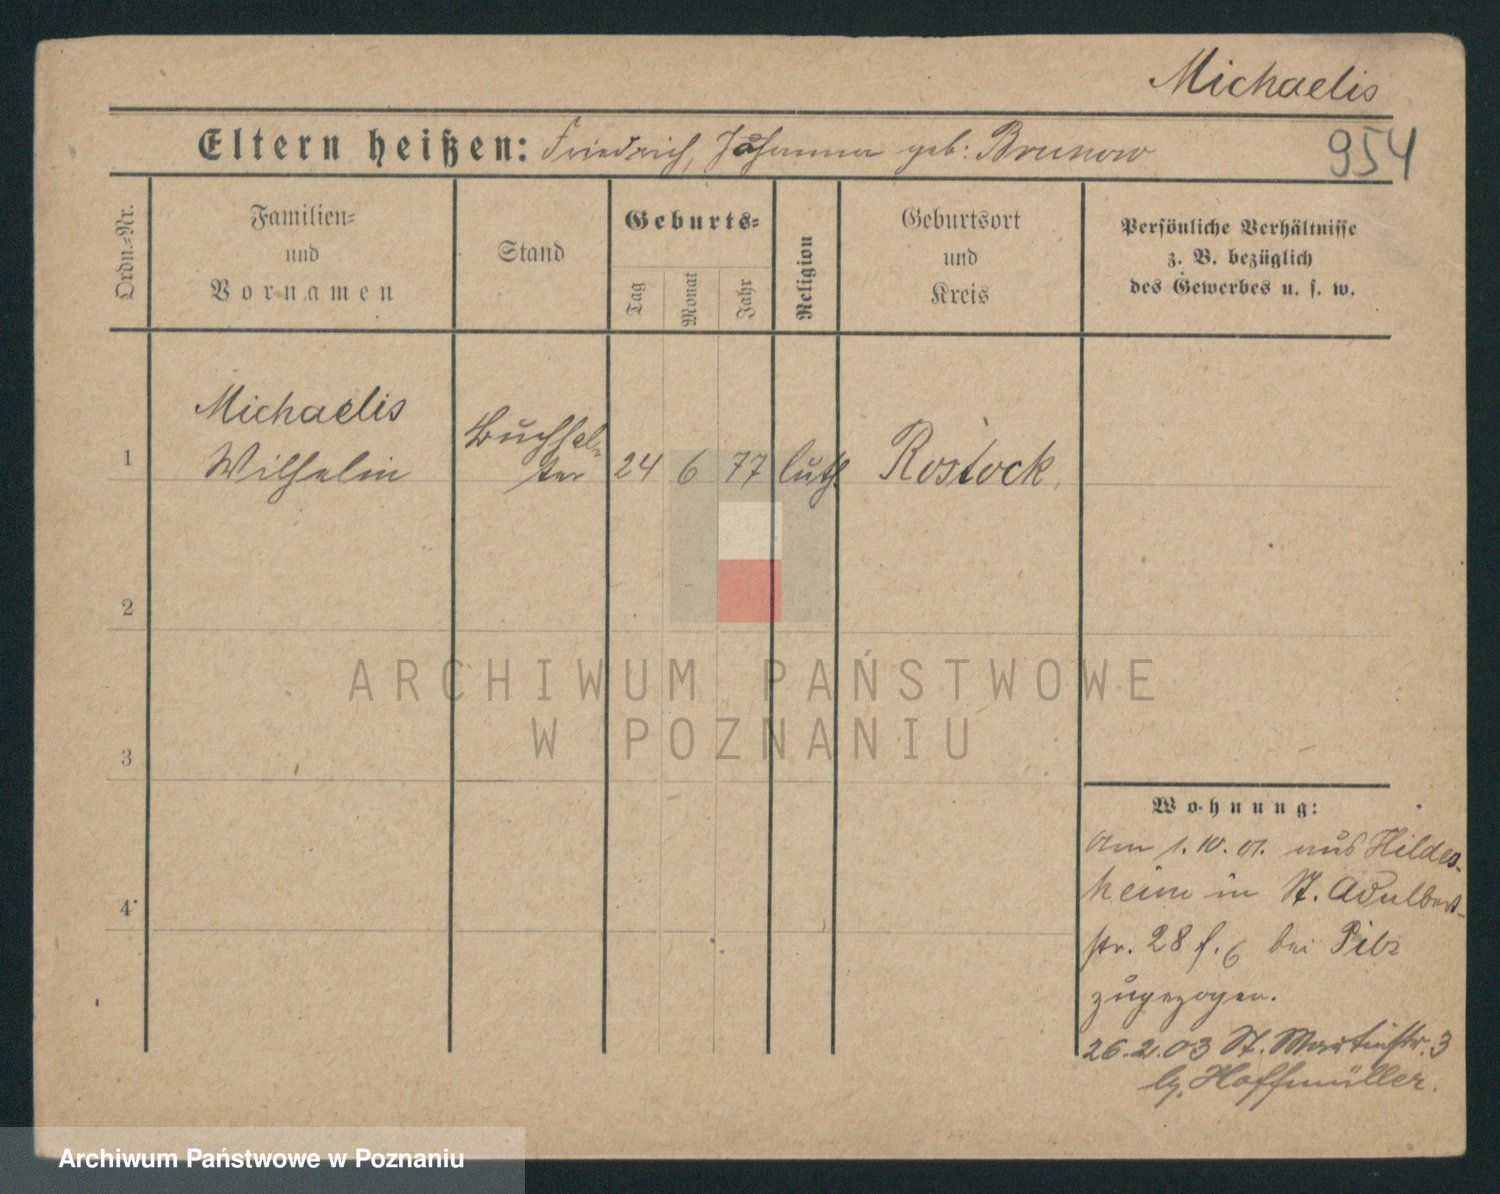 Michaelis
Eltern heißen: Friedrich, Johanna geb: Brunow
954
Ordn.-Nr.
Familien-
und
Vornamen
Stand
Geburts-
Tag
Monat
Jahr
Religion
Geburtsort
und
Kreis
Persönliche Verhältnisse
z. B. bezüglich
des Gewerbes u. s. w.
1
Michaelis
Wilhelm
Buchhal-
ter
24 6 77 luth. Rostock.
2
ARCHIWUM PAŃSTWOWE
W POZNANIU
3
Wohnung:
Am 1. 10. 01. aus Hildes-
heim in St. Adalbert-
4
str. 28 b. bei
zugezogen.
26.2.03 St. Martinstr. 3
bz. Hoffmüller.
Archiwum Państwowe w Poznaniu